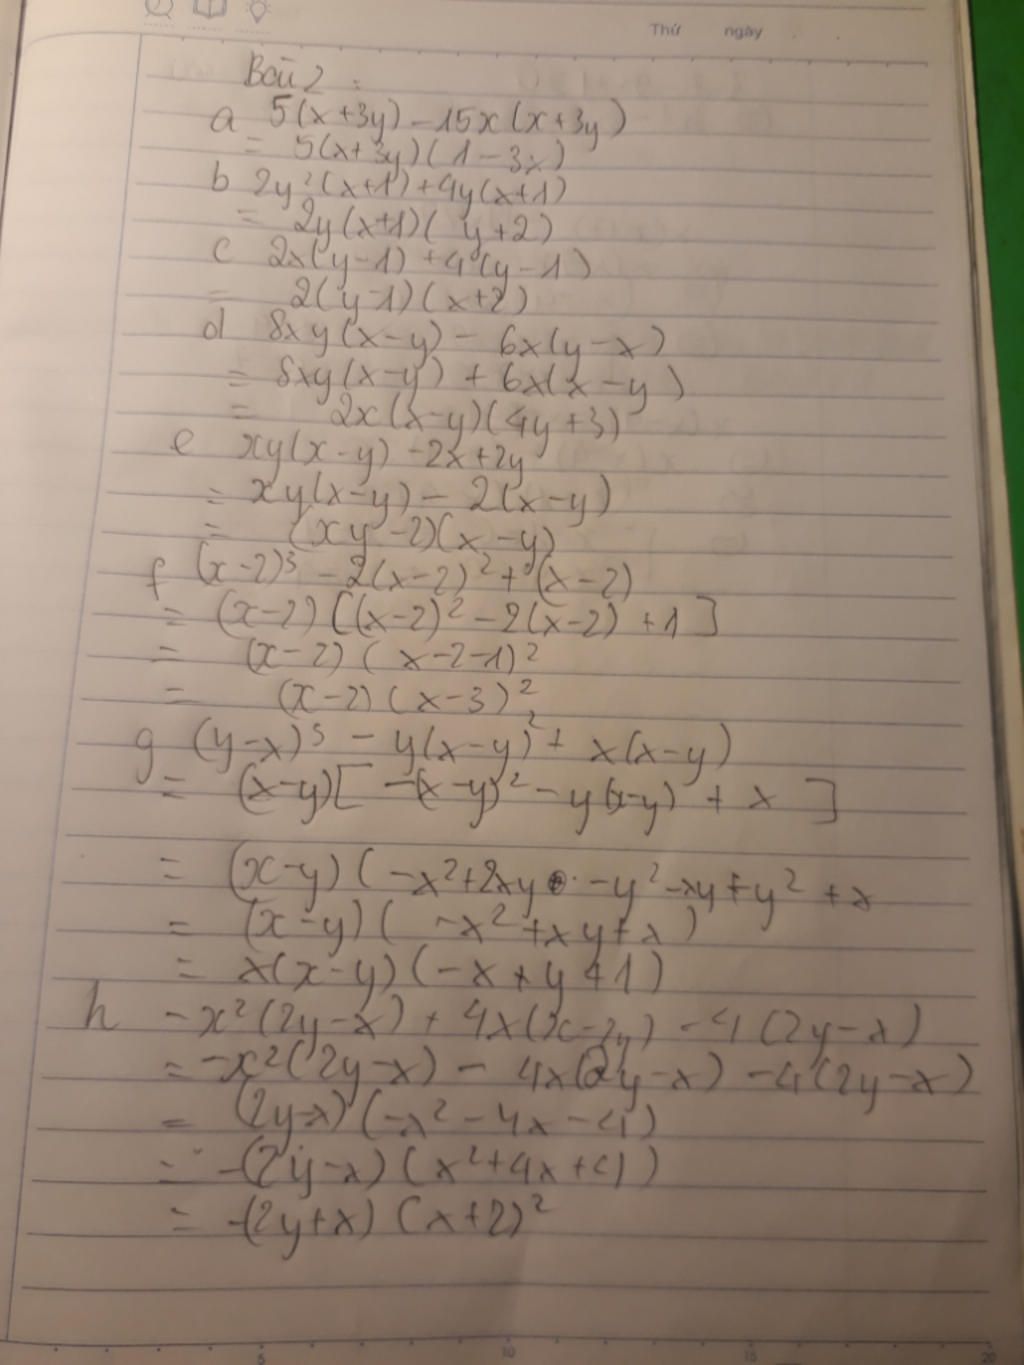 Thứ ngày
Bài 2 :
a 5(x+3y) - 15x(x+3y)
= 5(x+3y)(1-3x)
b 2y²(x+1)+4y(x+1)
= 2y(x+1)(y+2)
c 2x(y-1)+4(y-1)
= 2(y-1)(x+2)
d 8xy(x-y) - 6x(y-x)
= 8xy(x-y) + 6x(x-y)
= 2x(x-y)(4y+3)
e xy(x-y) -2x+2y
= xy(x-y) - 2(x-y)
= (xy-2)(x-y)
f (x-2)³ -2(x-2)²+(x-2)
= (x-2)[(x-2)² -2(x-2)+1]
= (x-2)(x-2-1)²
= (x-2)(x-3)²
g (y-x)³ - y(x-y)²+ x(x-y)
= (x-y)[-(x-y)² - y(x-y) + x]
= (x-y)(-x²+2xy -y²-xy+y²+x
= (x-y)(-x²+xy+x)
= x(x-y)(-x+y+1)
h -x²(2y-x) + 4x(x-2y) -4(2y-x)
= -x²(2y-x) - 4x(2y-x) -4(2y-x)
= (2y-x)(-x²-4x-4)
= -(2y-x)(x²+4x+4)
= -(2y+x)(x+2)²
5 10 15 20